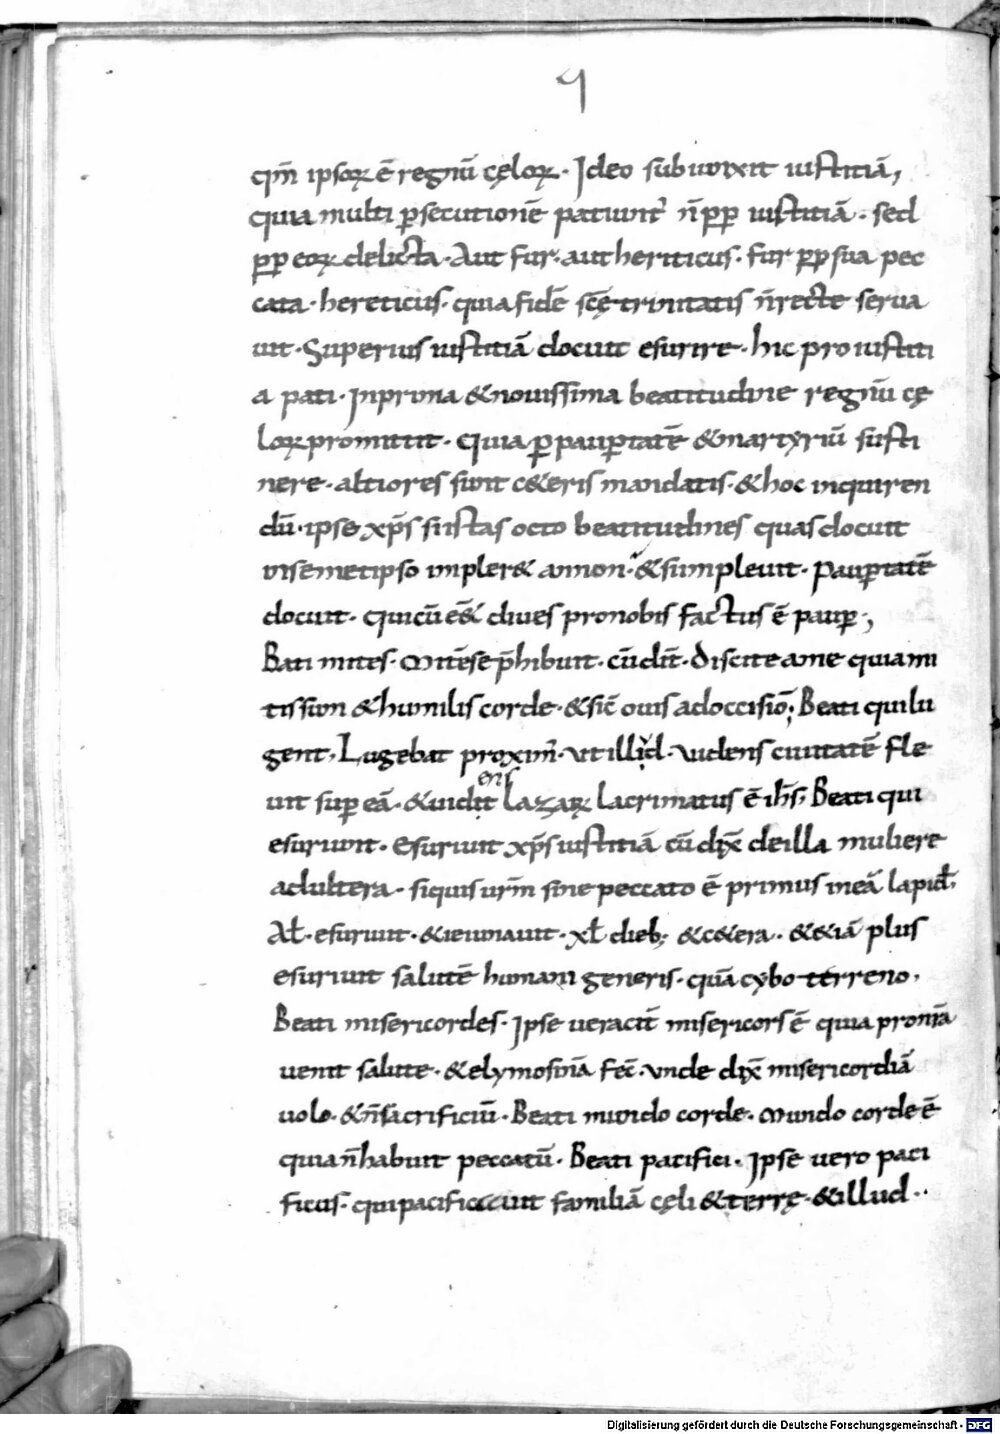 q
qm̄ ipsoꝝ ē regnū cęloꝝ· Ideo subiunxit iustitiā,
quia multi ꝑsecutionē patiunt᷑ n̄ ꝓp iustitiā· sed
ꝓp eoꝝ delicta· Aut fur· aut heriticus· fur ꝓp sua pec
cata· hereticus· quia fidē scę̄ trinitatis n̄ recte serua
uit· Superius iustitiā docuit esurire· hic pro iustiti
a pati· In prima & nouissima beatitudine regnū cę
loꝝ promittit· Quia ꝑ pauꝑtatē & martyriū susti
nere· altiores sunt c&eris mandatis· & hoc inquiren
dū· ipse xp̄s si istas octo beatitudines quas docuit
in semetipso impler& annon· & si impleuit· Pauꝑtatē
docuit· qui cū ēēt diues pro nobis factus ē pauꝑ·,
Bati mites· Mitē se p̄hibuit· cū dix̄· Discite a me quia mi
tis sum & humilis corde· & sic̄ ouis ad occisiō; Beati qui lu
gent· Lugebat proxim̄· ut illud· uidens ciuitatē fle
uit suꝑ eā· & uidit
ens
lazaꝝ lacrimatus ē ih̄s; Beati qui
esuriunt· Esuriuit xp̄s iustitiā cū dix̄ de illa muliere
adultera· si quis ur̄m sine peccato ē primus in eā lapid̄·
Al̄· esuriuit· & ieiunauit· xl̄ dieb; & c&era· & &iā plus
esuriuit salutē humani generis· quā cybo terreno·
Beati misericordes· Ipse ueracit̄ misericors ē quia pro nr̄a
uenit salute· & elymosinā fec̄· unde dix̄ misericordiā
uolo· & n̄ sacrificiū· Beati mundo corde· Mundo corde ē
quia n̄ habuit peccatū· Beati pacifici· Ipse uero paci
ficus· qui pacificauit familiā cęli & terrę· & illud··
Digitalisierung gefördert durch die Deutsche Forschungsgemeinschaft - DFG